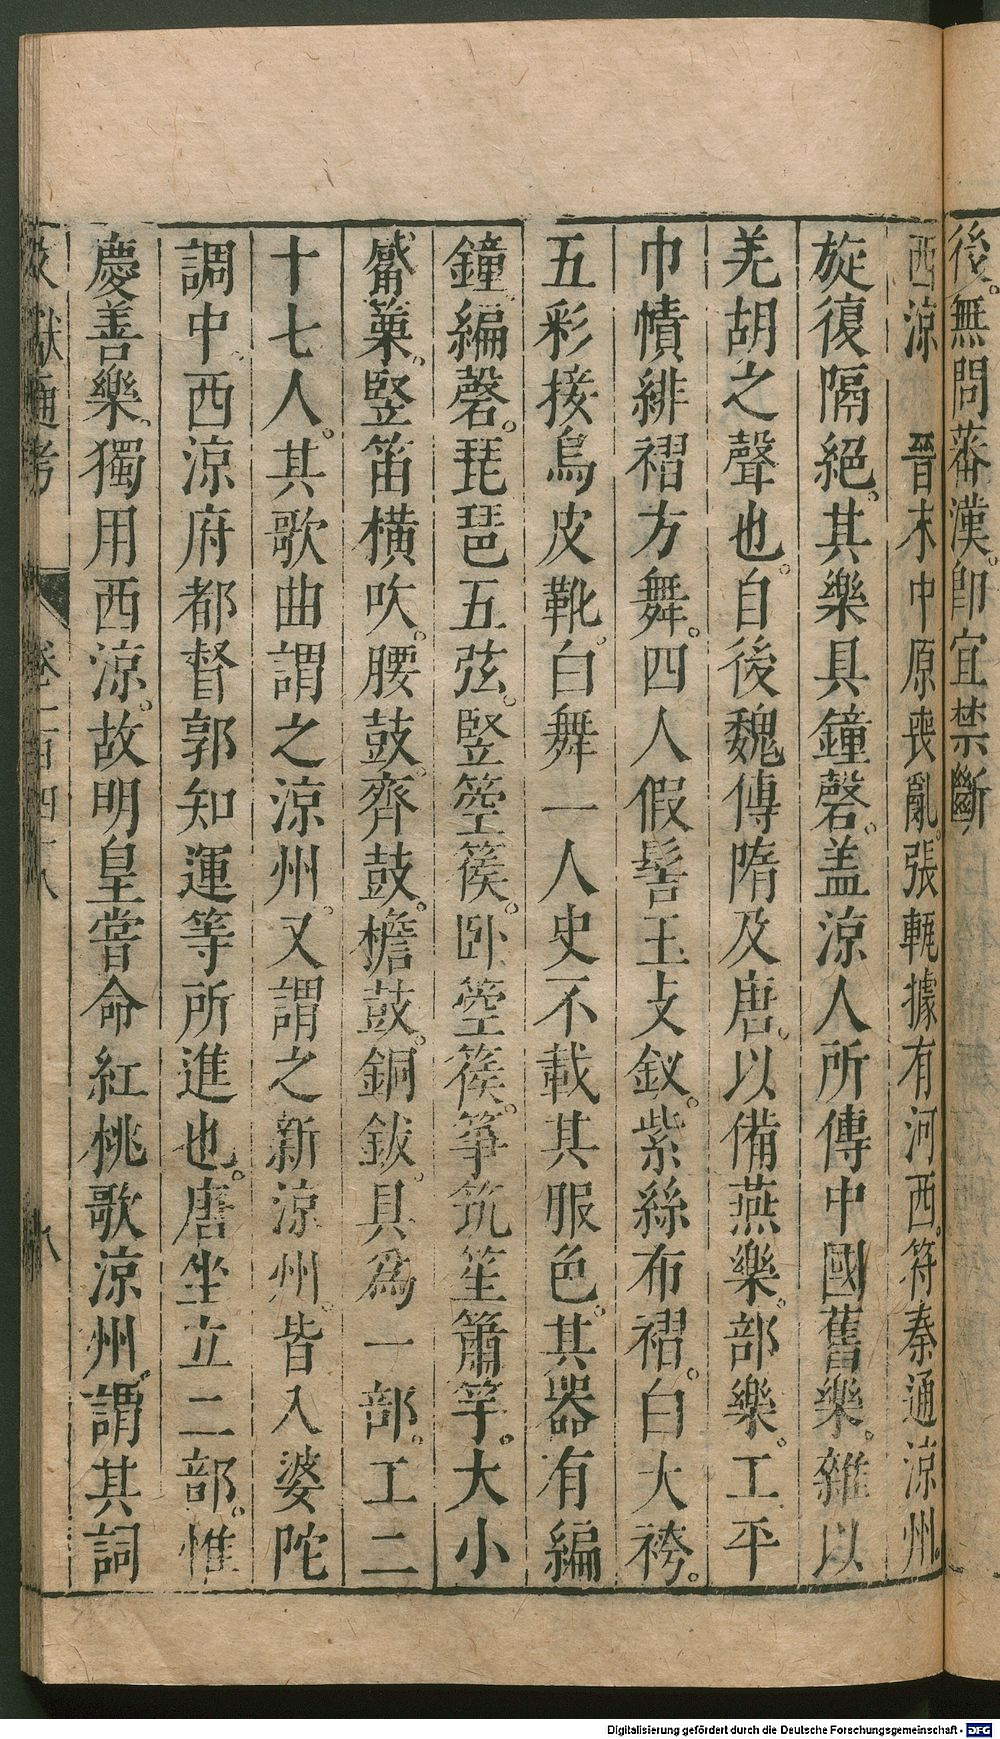 後。無問蕃漢。卽宜禁斷
西涼　晉末中原喪亂。張軌據有河西。符秦通涼州。
旋復隔絕。其樂具鐘磬。盖涼人所傳中國舊樂。雜以
羌胡之聲也。自後魏傳隋及唐。以備燕樂。部樂。工平
巾幘緋褶方舞。四人假髻玉攴釵。紫絲布褶。白大袴。
五彩接烏皮靴。白舞一人史不載其服色。其器有編
鐘。編磬。琵琶五弦。竪箜篌。卧箜篌。筝筑笙簫竽。大小
觱篥。竪笛橫吹。腰鼓。齊鼓。檐鼓。銅鈸。具爲一部。工二
十七人。其歌曲謂之涼州。又謂之新涼州。皆入婆陀
調中。西涼府都督郭知運等所進也。唐坐立二部。惟
慶善樂。獨用西涼。故明皇嘗命紅桃歌涼州。謂其詞
獻通考　八
Digitalisierung gefördert durch die Deutsche Forschungsgemeinschaft - DFG